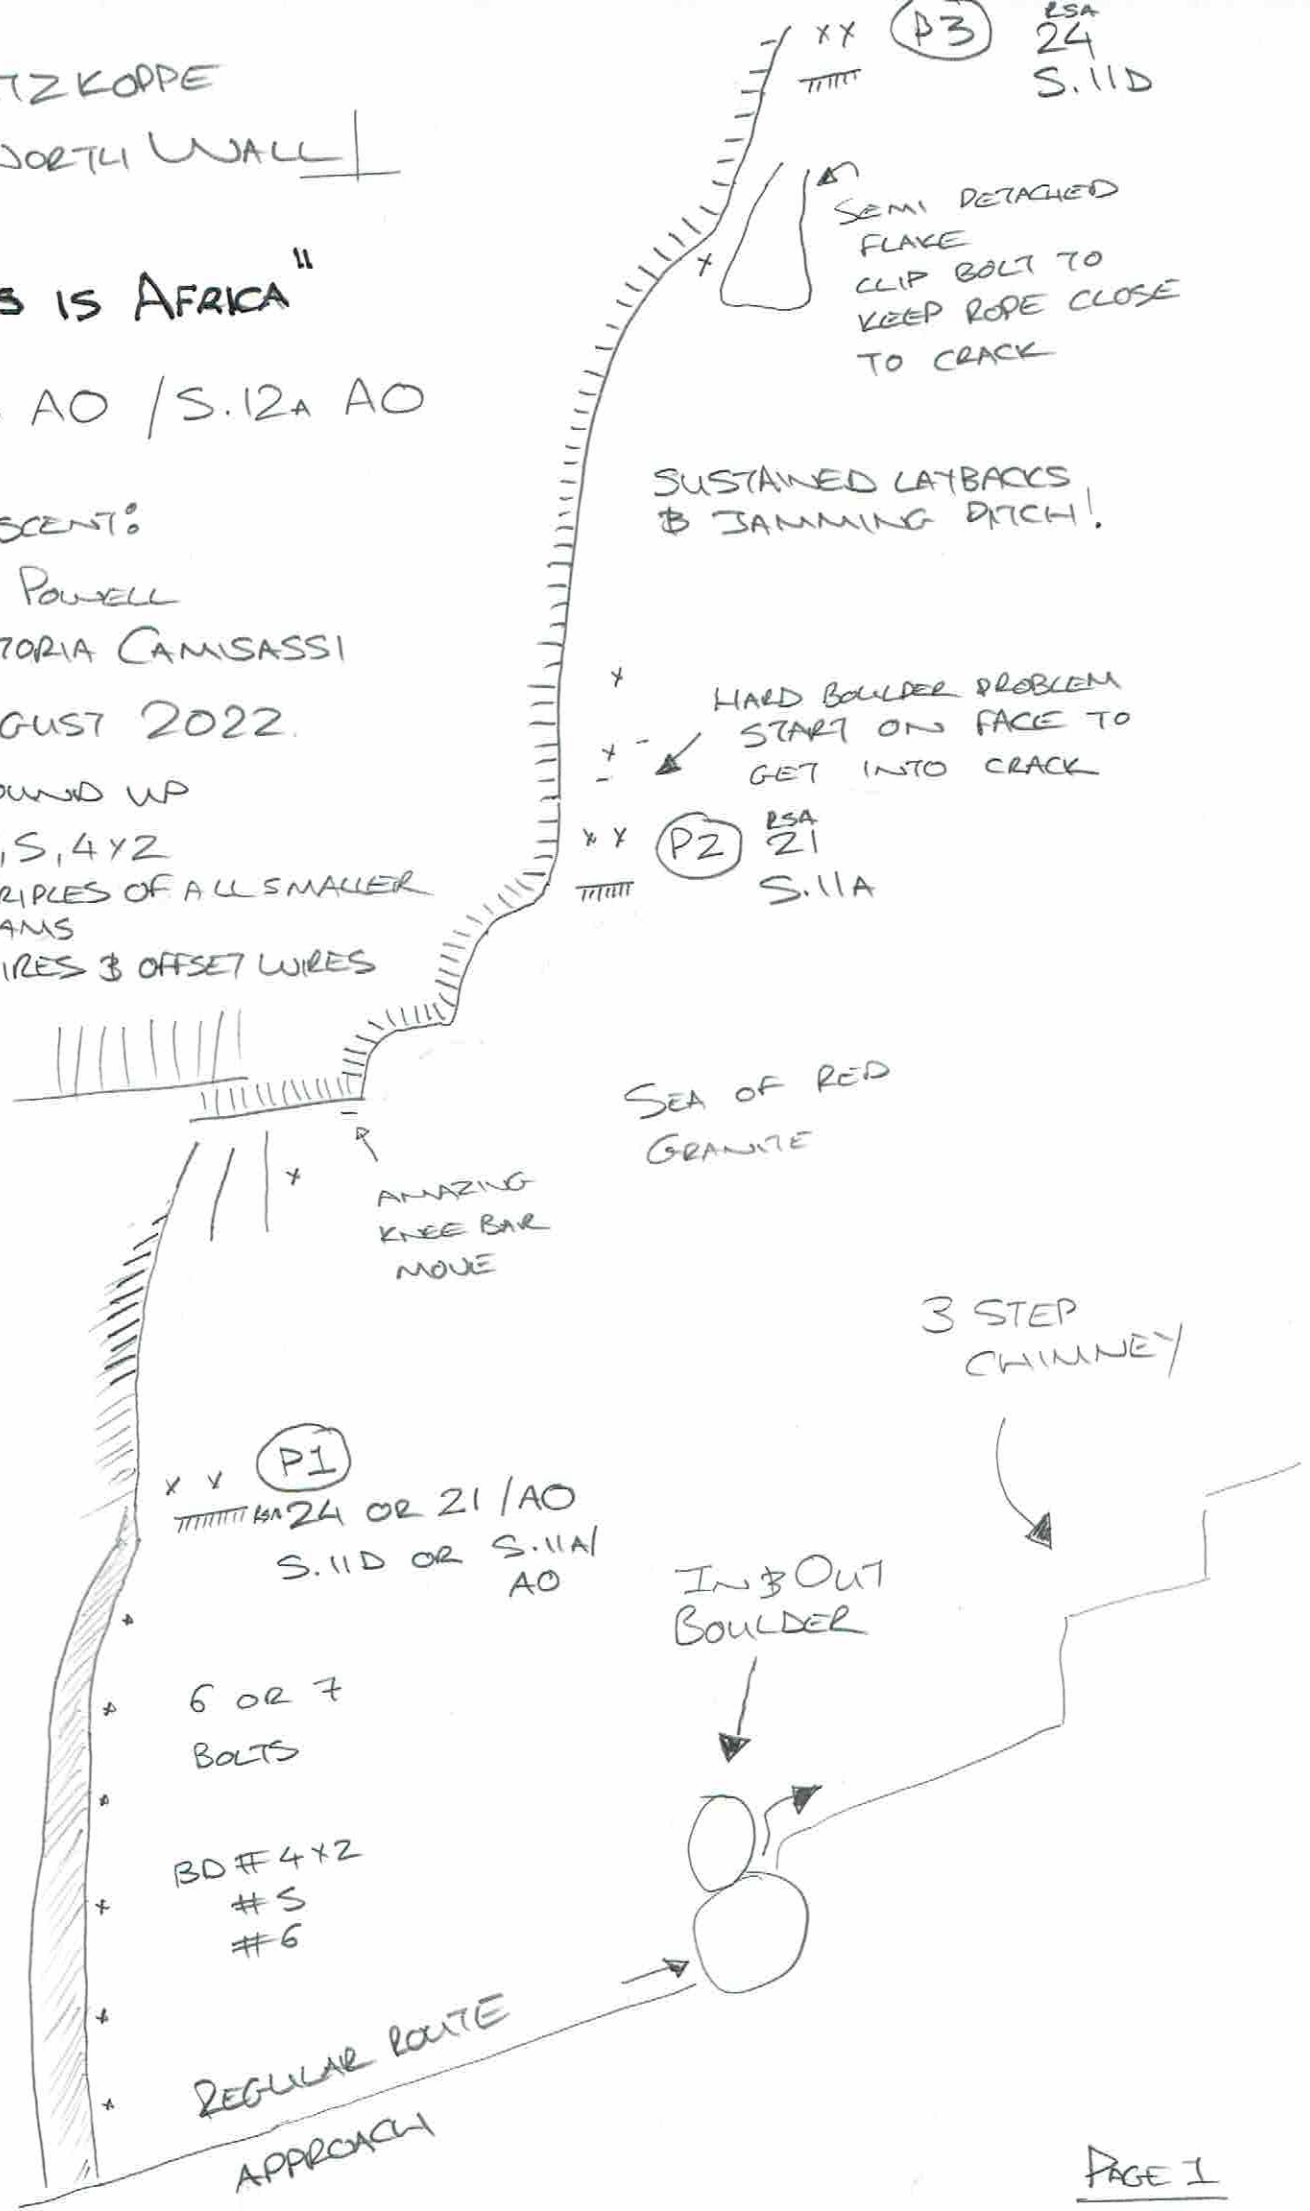 TZKOPPE
NORTH WALL
S IS AFRICA"
AO / S.12A AO
SCENT:
POWELL
TORIA CAMISASSI
GUST 2022.
OUND UP
,5,4x2
RIPLES OF ALL SMALLER
AMS
IRES & OFFSET WIRES
xx P3 RSA
24
S.11D
SEMI DETACHED
FLAKE
CLIP BOLT TO
KEEP ROPE CLOSE
TO CRACK
SUSTAINED LAYBACKS
& JAMMING PITCH!
HARD BOULDER PROBLEM
START ON FACE TO
GET INTO CRACK
x x P2 RSA
21
S.11A
SEA OF RED
GRANITE
AMAZING
KNEE BAR
MOVE
3 STEP
CHIMNEY
x x P1
RSA 24 OR 21/AO
S.11D OR S.11A/
AO
IN & OUT
BOULDER
6 OR 7
BOLTS
BD #4x2
#5
#6
REGULAR ROUTE
APPROACH
PAGE 1